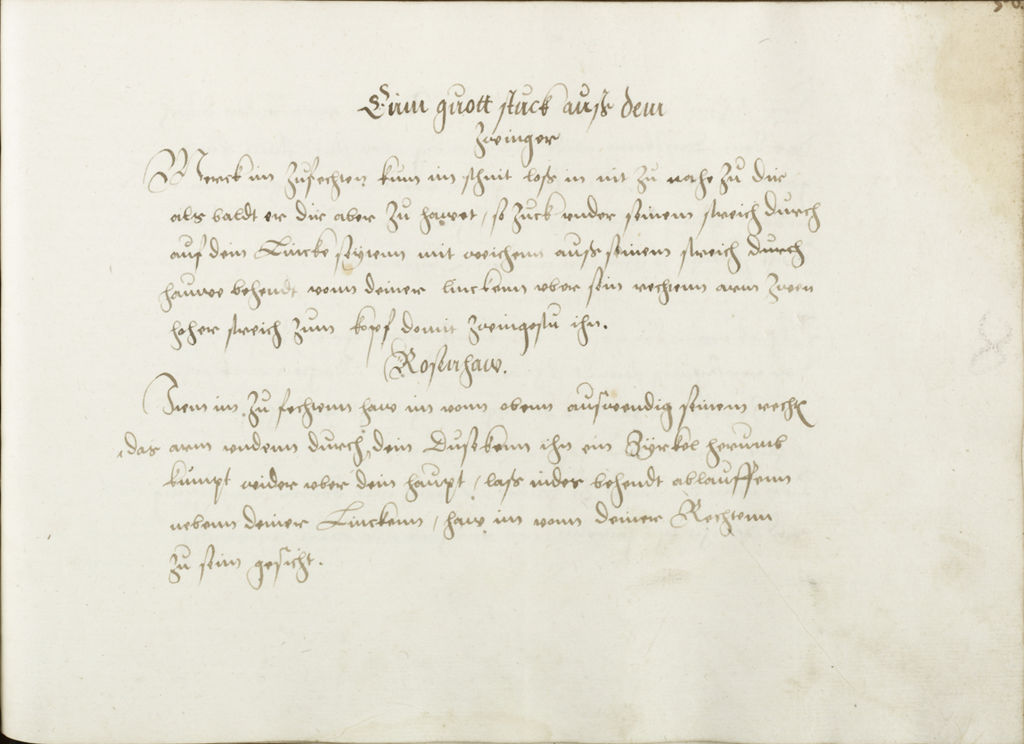 Einn guott stuck auß dem
Zwinger
Merck im Zufechten kum im schnit loß in nit zu nahe zu dir
als baldt er dir aber zu hawet / so zuck vnder seinem streich durch
auf dein Lincke seyten mit weichenn auß seinem streich durch
hauwe behendt vonn deiner linckenn vber sein rechtenn arm zwen
hoher streich zum kopf domit zwingestu ihn.
Rosenhaw.
Item im Zu fechtenn haw im vonn obenn auswendig seinem recht
das arm vndenn durch dein Dusekenn ihn ein Zyrkel herumb
kumpt wider vber dein haupt / laß indes behendt ablauffenn
nebenn deiner Linckenn / haw im vonn deiner Rechtenn
zu seim gesicht.